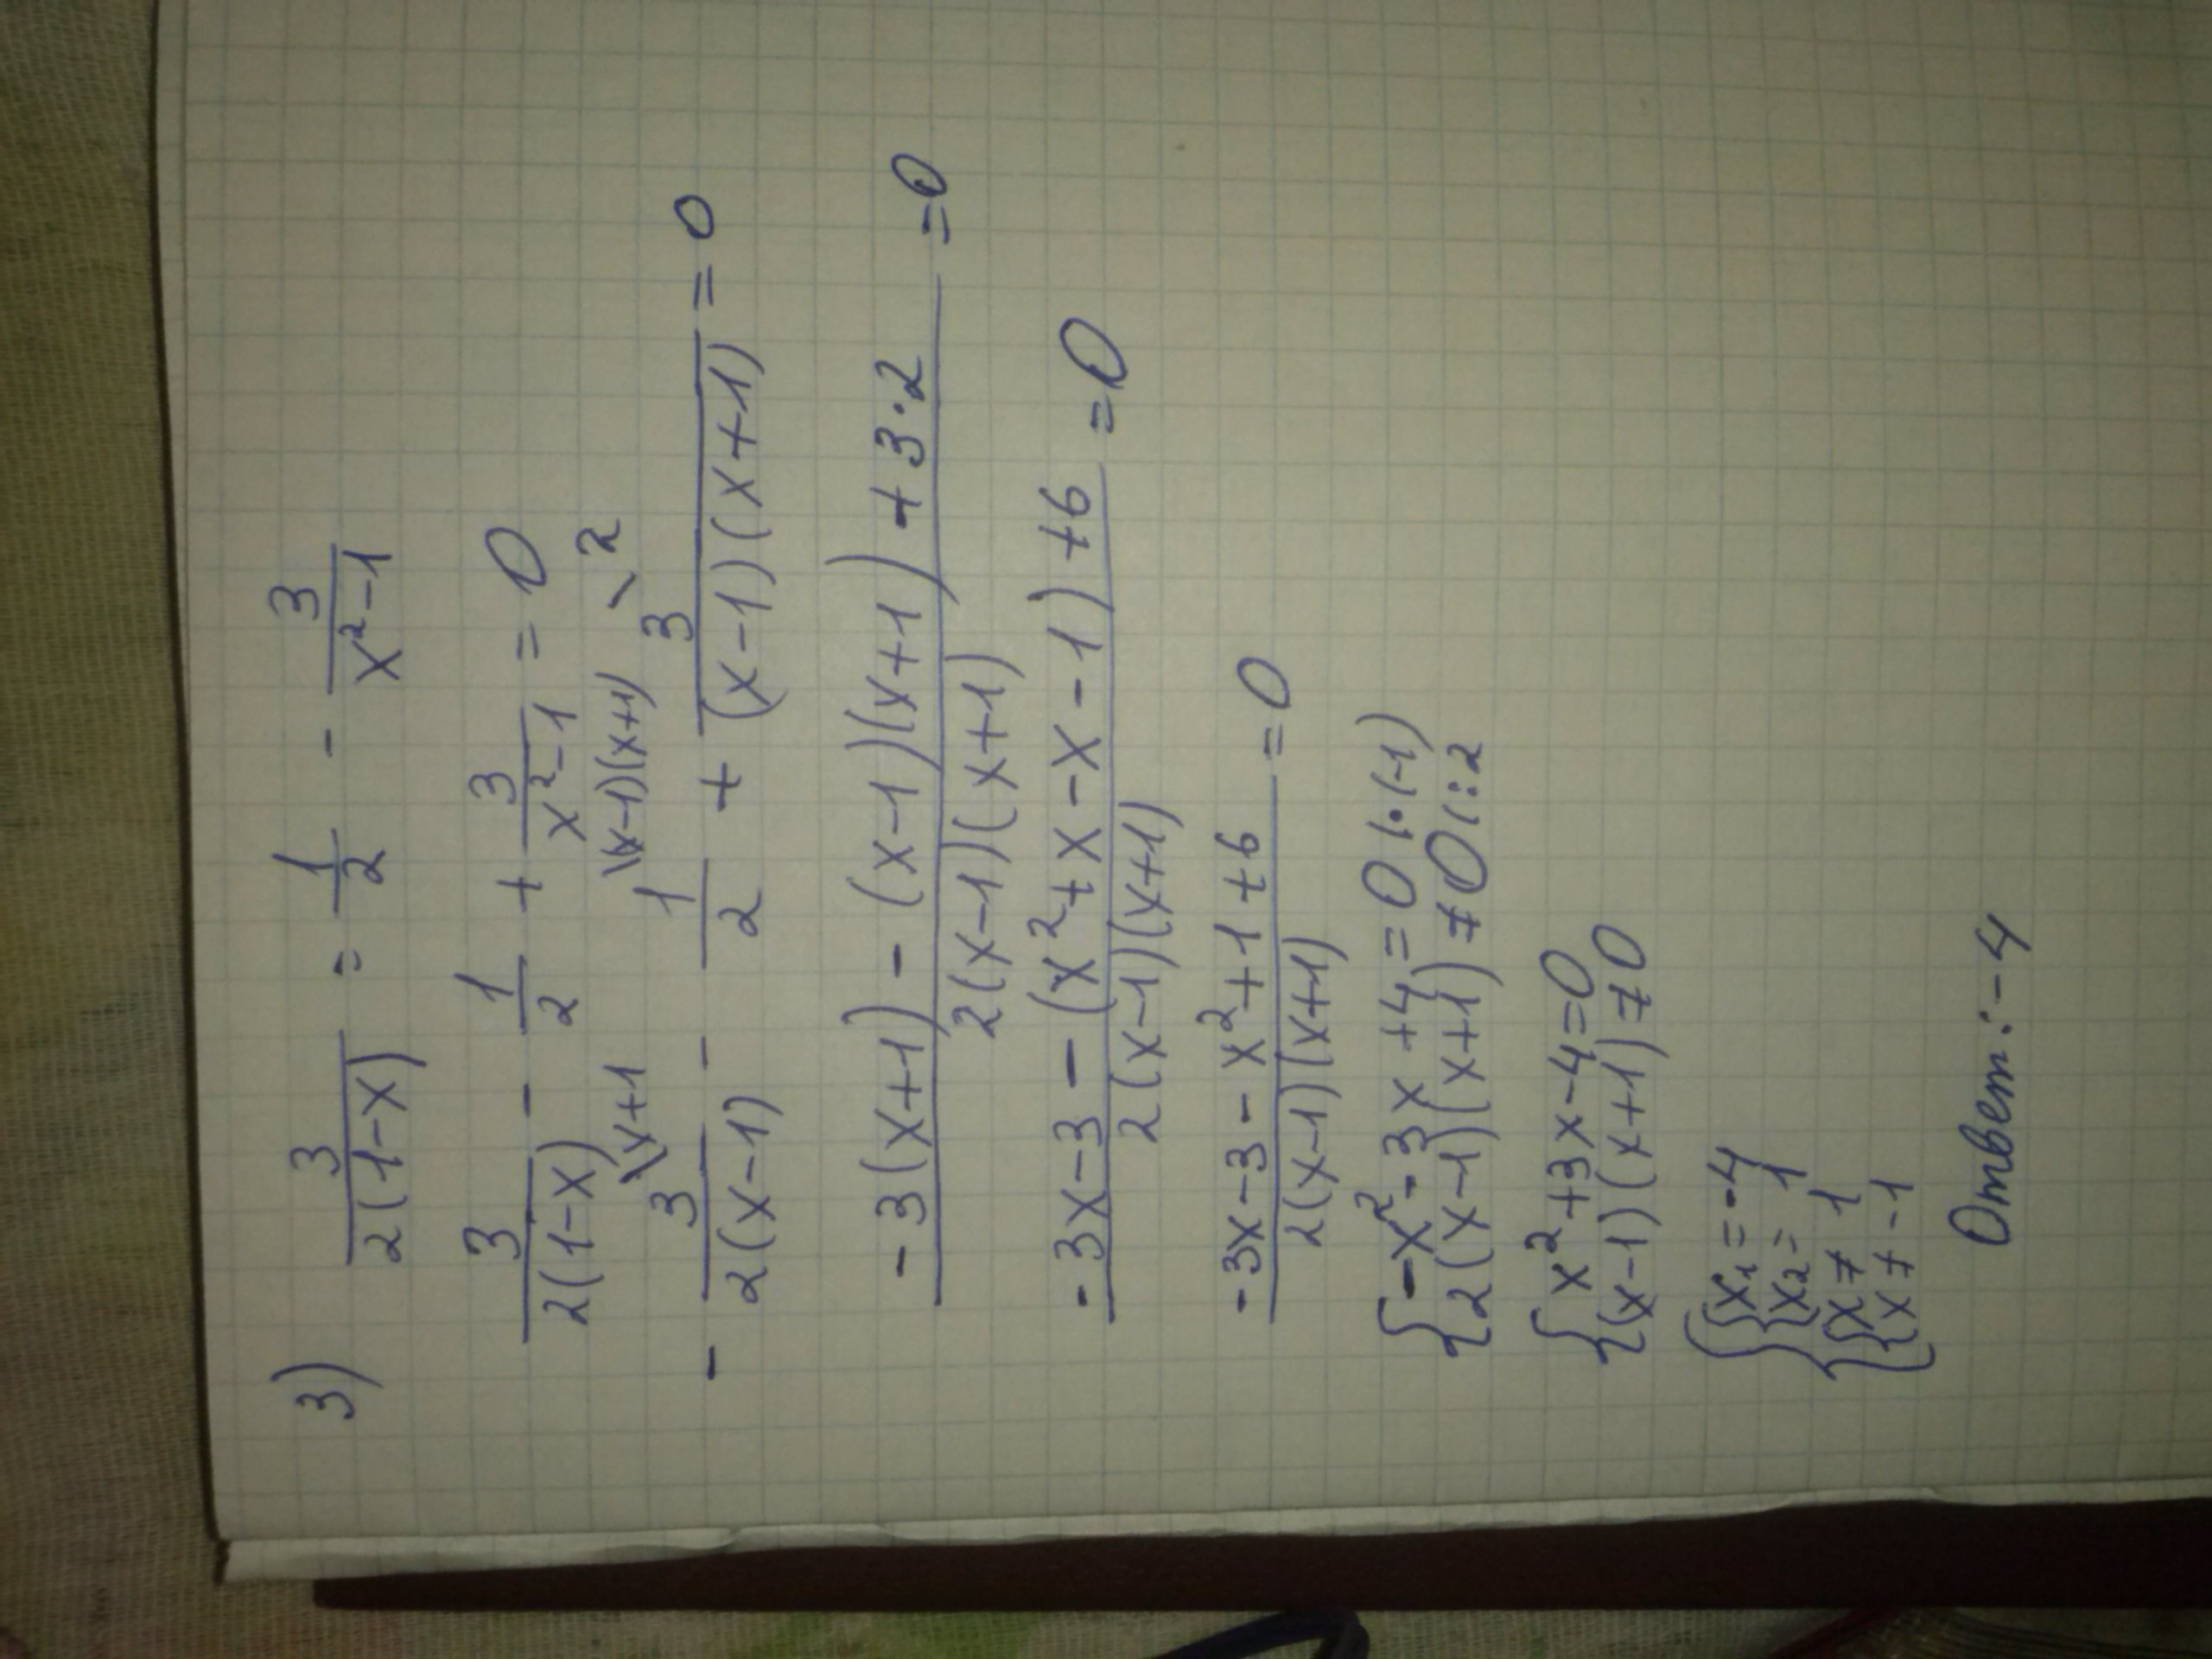 3) 3/(2(1-x)) = 1/2 - 3/(x²-1)
3/(2(1-x)) - 1/2 + 3/(x²-1) = 0
- 3\x+1/(2(x-1)) - 1\(x-1)(x+1)/2 + 3\2/((x-1)(x+1)) = 0
(-3(x+1) - (x-1)(x+1) + 3·2)/(2(x-1)(x+1)) = 0
(-3x-3-(x²+x-x-1)+6)/(2(x-1)(x+1)) = 0
(-3x-3-x²+1+6)/(2(x-1)(x+1)) = 0
{-x²-3x+4=0 |·(-1)
{2(x-1)(x+1)≠0 |:2
{x²+3x-4=0
{(x-1)(x+1)≠0
{{x₁=-4
{{x₂=1
{{x≠1
{{x≠-1
Ответ: -4